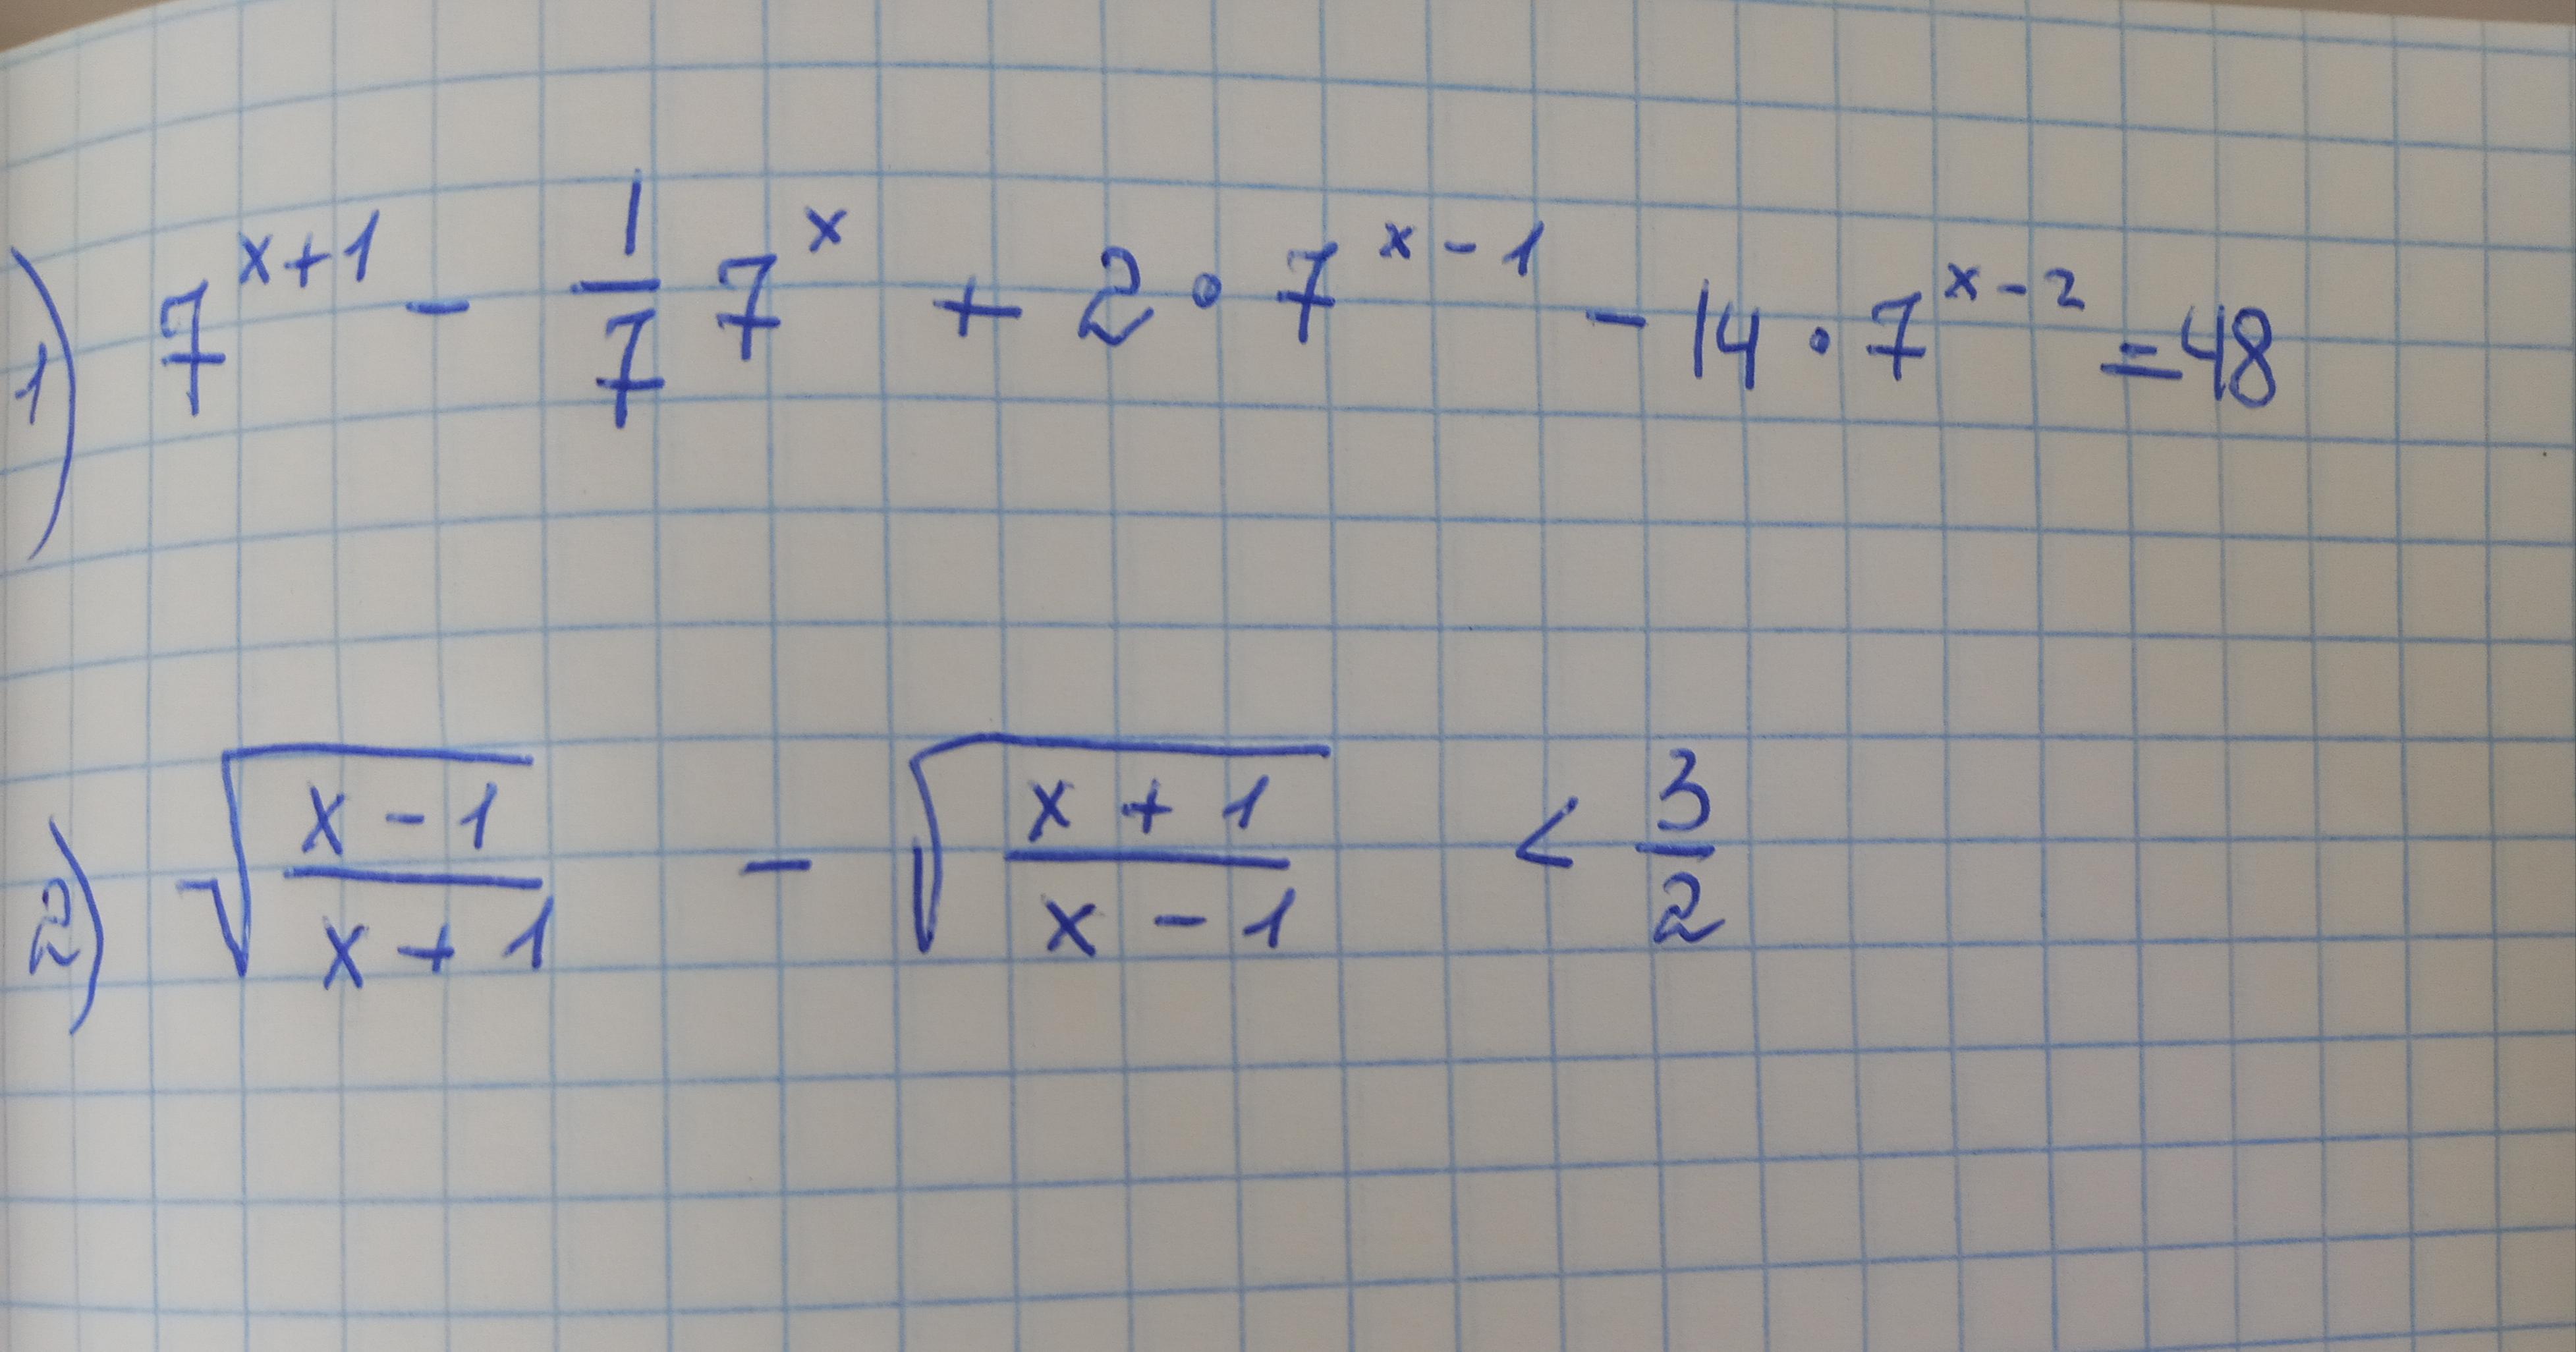 1) 7^{x+1} - \frac{1}{7} 7^x + 2 · 7^{x-1} - 14 · 7^{x-2} = 48
2) \sqrt{\frac{x-1}{x+1}} - \sqrt{\frac{x+1}{x-1}} < \frac{3}{2}